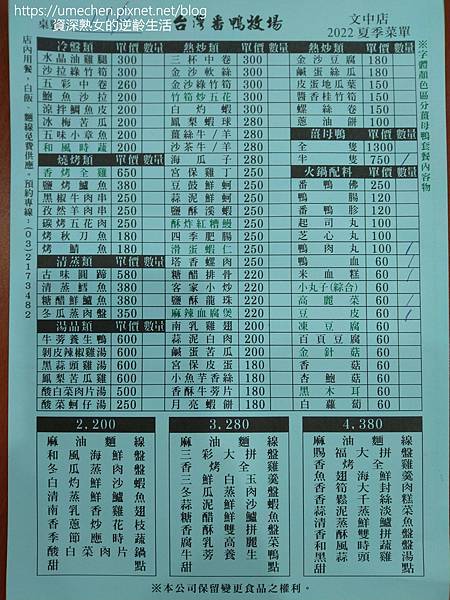 https://umechen.pixnet.net/blog
資深熟女的逆齡生活
台灣番鴨牧場
文中店
2022夏季菜單
※字體顏色區分薑母鴨套餐內容物
店內用餐，白飯、麵線免費供應。預約專線：(03)2173482
冷盤類 單價 數量
水晶油雞腿 300
沙拉綠竹筍 300
五彩中卷 260
鮑魚沙拉 200
涼拌鯛魚皮 200
冰梅苦瓜 200
五味小章魚 200
和風時蔬 180
燒烤類 單價 數量
香烤全雞 650
鹽烤鱸魚 380
黑椒牛肉串 250
孜然羊肉串 250
碳烤五花肉 250
烤秋刀魚 180
烤鯖魚 180
清蒸類 單價 數量
古味圓蹄 580
清蒸鱈魚 380
糖醋鮮鱸魚 380
冬瓜蒸肉盤 350
湯品類 單價 數量
牛蒡養生鴨 600
剝皮辣椒雞湯 600
黑蒜頭雞湯 600
鳳梨苦瓜雞 600
酸白菜肉片湯 500
酸菜蚵仔湯 250
熱炒類 單價 數量
三杯中卷 300
金沙軟絲 300
金沙綠竹筍 300
竹筍炒五花 300
白灼蝦 300
鳳梨蝦球 280
薑絲牛/羊 280
沙茶牛/羊 280
海瓜子 280
宮保雞丁 250
豆鼓鮮蚵 250
蒜泥鮮蚵 250
鹽酥溪蝦 250
酥炸紅糟鰻 250
四季肥腸 250
滑蛋蝦仁 250
塔香螺肉 250
糖醋排骨 250
客家小炒 220
鹽酥龍珠 220
麻辣血腐煲 220
南乳雞翅 200
蒜泥白肉 200
鹹蛋苦瓜 200
宮保皮蛋 180
小魚芋香絲 180
香酥牛蒡片 180
月亮蝦餅 180
熱炒類 單價 數量
金沙豆腐 180
鹹蛋絲瓜 180
皮蛋地瓜葉 150
醬香桂竹筍 150
螺絲卷 150
蔥油餅 100
薑母鴨 單價 數量
全隻 1300
半隻 750
火鍋配料 單價 數量
番鴨佛 250
鴨腸 120
番鴨胗 120
起司丸 100
芝心丸 100
鴨肉丸 100
鴨血 60
米血 60
小丸子(綜合) 60
高麗菜 60
豆皮 60
凍豆腐 60
百頁豆腐 60
金針菇 60
香菇 60
杏鮑菇 60
黑木耳 60
白蘿蔔 60
2,200
麻油麵線
和風海鮮盤
冬瓜蒸肉盤
白灼鮮蝦
清蒸鱸魚
南乳雞翅
香蔥炒花枝
季節時蔬
酸白菜肉片鍋
甜點
3,280
麻油麵線
三彩大拼盤
香烤全雞
三鮮白玉羹
冬瓜蒸肉盤
蒜泥鮮沙蝦
糖醋鱸魚
香酥雙拼盤
腐乳高麗菜
牛蒡養生鴨
甜點
4,380
麻油麵線
賜福大拼盤
香烤全雞
魚翅海鮮羹
香筍大封肉
香鬆干絲糕
蒜泥蒸淡菜
清蒸鮮鱸魚
香酥雙拼盤
和風時蔬
黑蒜頭雞湯
甜點
※本公司保留變更食品之權利。